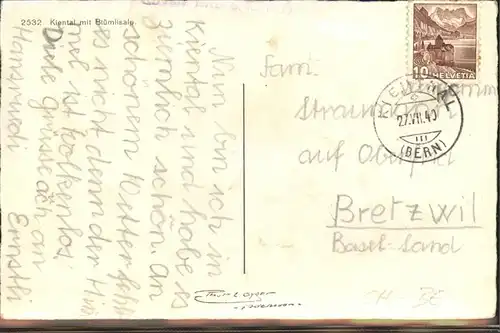 2532 Kiental mit Blümlisalp.
Nun bin ich in
Kiental und habe es
ziemlich schön. An
schönem Wetter fehlt
es nicht denn der Him
mel ist wolkenlos.
Viele Grüsse auch an
Hansruedi Ernstli
Fam.
Straumann
auf Oberfeld
Bretzwil
Basel-Land
10
HELVETIA
KIENTAL
27.VII.40
(BERN)
CH-BE